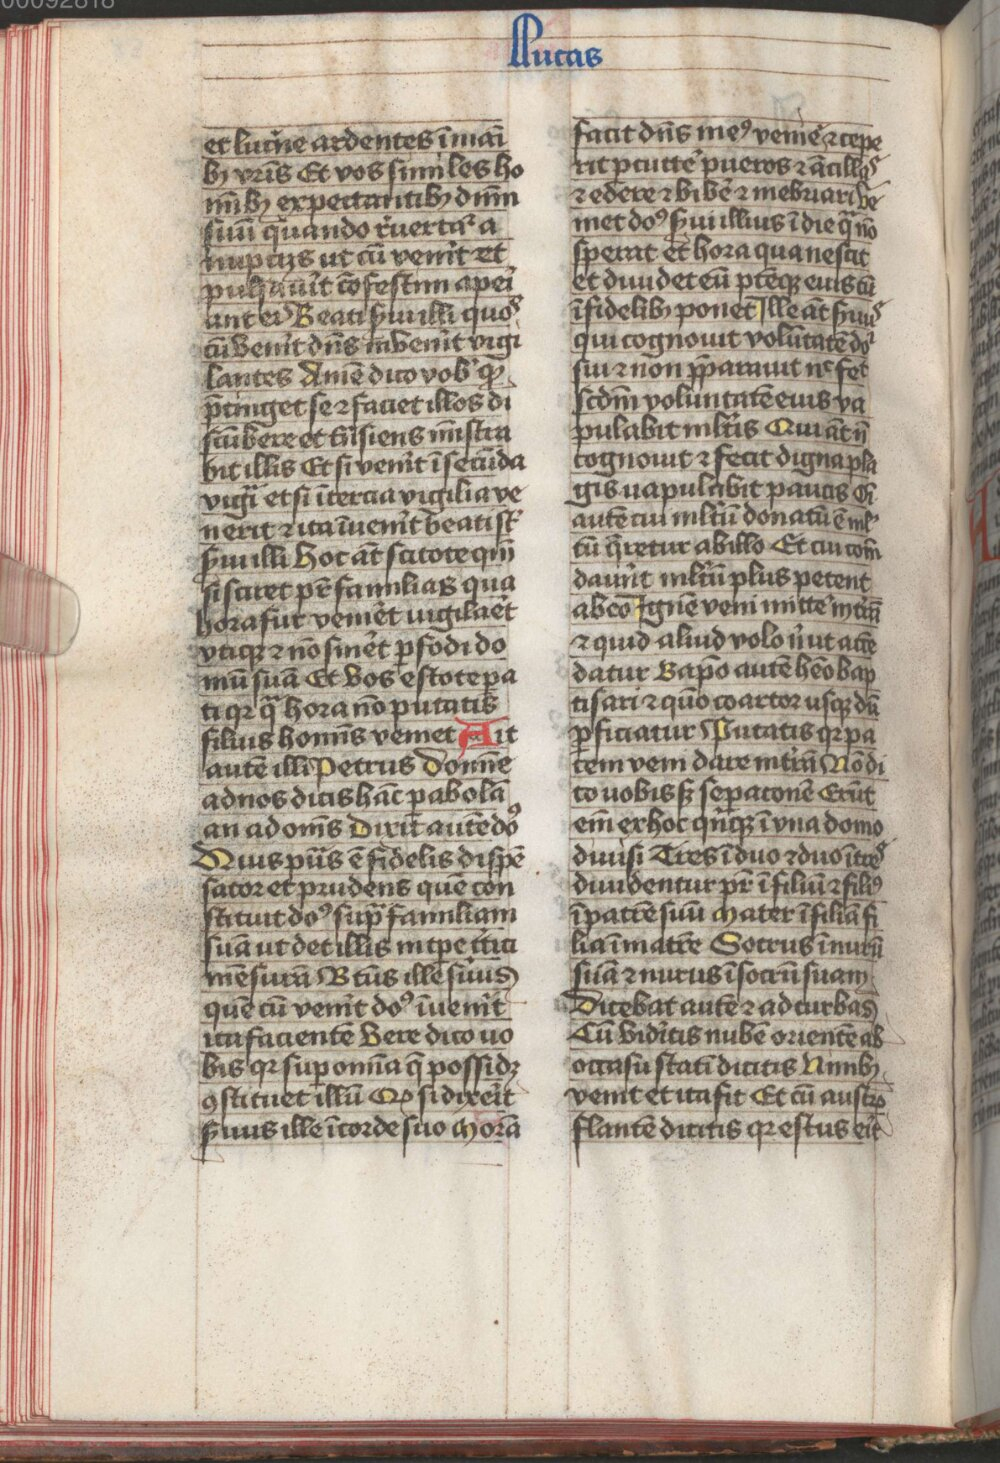 00092818
Lucas
et lucˀne ardentes ī mani
bꝫ vr̄is Et vos similes ho
mīībꝫ expectantibꝫ dn̄m
suū quando rˀuertatˀ a
nupcijs ut cū venˀit et
pulsauˀit cōfestim apeˀi
ant ei Beati sˀui illi quos
cū venˀit dn̄s invenˀit vigi
lantes Amē dico vobˀ qꝫ
p̄cinget se ⁊ faciet illos di
scūbere et tˀnsiens mīstra
bit illis Et si venˀit ī secūda
vigiˀa et si ī tercia vigilia ve
nerit ⁊ ita īuenˀit beati sˀt
sˀui illi Hoc āt scitote qm̄
si sciret pr̄ familias qua
hora fur venˀiet uigilaˀet
vtiqꝫ ⁊ nō sinˀet ꝑfodi do
mū suā Et vos estote pa
ti qꝛ qˀa hora nō putatis
filius homīs veniet Ait
autē illi Petrus Domīe
ad nos dicis hāc ꝑabolā
an ad omīs Dixit autē doˀ
Quis putˀs ē fidelis dispē
sator et prudens quē con
stituit doˀ supˀ familiam
suā ut det illis in tpe tˀtici
mēsurā Btūs ille sˀuus
quē cū venˀit doˀ īuenˀit
ita facientē Vere dico uo
bis qꝛ suꝑ omīa q̄ possidꝫ
ꝯstituet illū Qꝫ si dixerˀit
sˀuus ille ī corde suo Morā
facit dn̄s meꝰ venirˀe ⁊ cepe
rit ꝑcuterˀe pueros ⁊ ācillas
⁊ edere ⁊ bibēˀ ⁊ inebriari Ve
niet doˀ sˀui illius ī die qˀa nō
sperat et hora qua nescit
et diuidet eū ꝑtēqꝫ eius cū
īfidelibꝫ ponet Ille āt sˀuus
qui cognouit volūtatē doˀ
sui ⁊ non pp̄arauit ⁊ nˀ fecˀ
scdm̄ voluntatē eius va
pulabit ml̄tis Qui āt nˀ
cognouit ⁊ fecit digna pla
gis uapulabit paucis Oī
autē cui ml̄tū donatū ē ml
tū qˀretur ab illo Et cui com̄
dauˀit ml̄tū plus petent
ab eo Ignē veni mittˀe in tˀrā
⁊ quid aliud volo nˀ ut accē
datur Bapˀo autē hēo bap
tisari ⁊ quō coartor usqꝫ dū
ꝑficiatur Putatis qꝛ pa
cem veni dare in tˀrā Nō di
co uobis sꝫ sepacōnē Erūt
em̄ ex hoc qˀnqꝫ ī vna domo
diuisi Tres ī duo ⁊ duo ī tres
diuidentur pr̄ ī filiū ⁊ filiꝰ
ī patrē suū Mater ī filiā fi
lia ī matrē Socrus ī nurū
suā ⁊ nurus ī socrū suam
Dicebat autē ⁊ ad turbas
Cū videˀitis nubē orientē ab
occasu statī dicitis Nimbꝫ
venit et ita fit Et cū austrˀo
flantē dicitis qꝛ estus erˀit